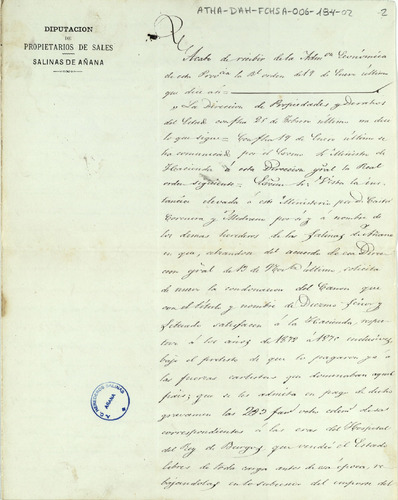 ATHA-DAH-FCHSA-006-184-02
2
DIPUTACION
DE
PROPIETARIOS DE SALES
SALINAS DE AÑANA
Acabo de recibir de la Admon Económica
de esta Provcia la Rl orden del 9 de Enero último
que dice así=
"La Direccion de Propiedades y Derechos
del Estado con fha 25 de Febrero último me dice
lo que sigue= Con fha 19 de Enero último se
ha comunicado por el Excmo Sr Ministro de
Hacienda á esta Direccion gral la Real
orden siguiente= Excmo Sr: Vista la ins-
tancia elevada á este Ministerio por Dn
y á nombre de
los demas herederos de las Salinas de Añana
en que, alzandose del acuerdo de esa Direc-
cion gral de último, solicita
de nuevo la condonacion del Canon que
con el título y nombre de Diezmo
satisfacen á la Hacienda, respec-
tivo á los años de 1873 á 1876 inclusives,
bajo el pretesto de que lo pagaron ya á
las fuerzas carlistas que dominaban aquel
pais; que se les admita en pago de dichos
gravamenes las 283 fans de sal
correspondientes á las eras del Hospital
del Rey de Burgos que vendió el Estado
libres de toda carga antes de esa época, re-
bajandolas en lo sucesivo del
A.C. HEREDEROS SALINAS
AÑANA